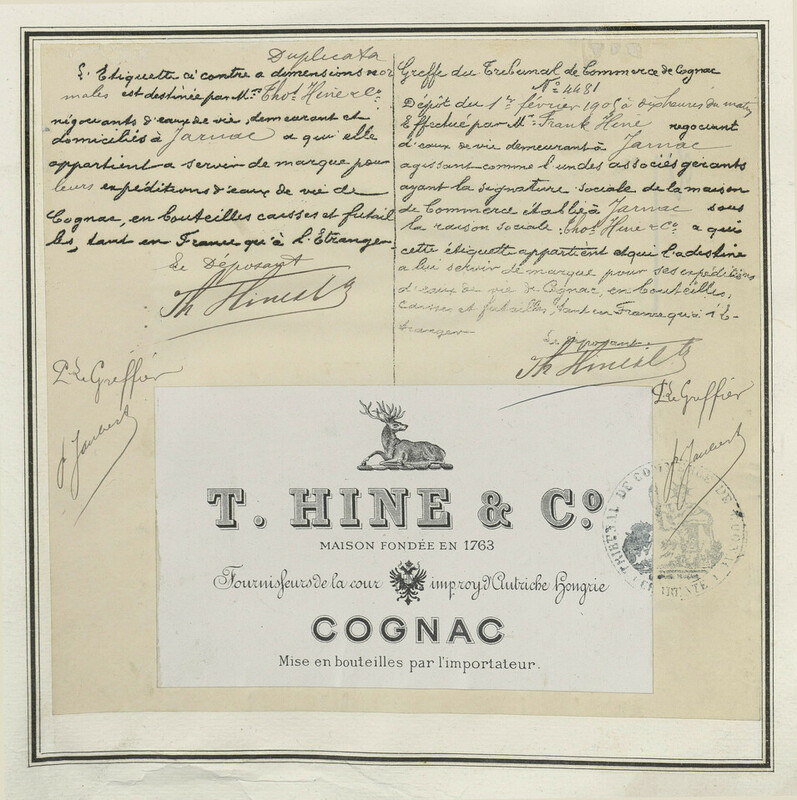 Duplicata
L'Etiquette ci contre a dimensions nor
males est destinée par Mrs Thos Hine & Co
négociants d'eaux de vie, demeurant et
domiciliés à Jarnac a qui elle
appartient a servir de marque pour
leurs expéditions d'eaux de vie de
Cognac, en bouteilles caisses et futail
les, tant en France qu'à L'Etranger
Le Déposant
Th Hine & Co
Pr Le Greffier
Greffe du Tribunal de Commerce de Cognac
No 4481
Dépôt du 1er février 1905 à dix heures du matin
Effectué par Mr Frank Hine négociant
d'eaux de vie demeurant à Jarnac
agissant comme l'un des associés gérants
ayant la signature sociale de la maison
de Commerce établie à Jarnac sous
la raison sociale Thos Hine & Co a qui
cette étiquette appartient et qui la destine
a lui servir de marque pour ses expéditions
d'eaux de vie de Cognac, en bouteilles,
caisses et futailles, tant en France qu'à l'E-
tranger
Le Déposant
Th Hine & Co
Pr Le Greffier
T. HINE & Co.
MAISON FONDÉE EN 1763
Fournisseurs de la cour impr royd'Autriche Hongrie
COGNAC
Mise en bouteilles par l'importateur.
TRIBUNAL DE COMMERCE DE COGNAC